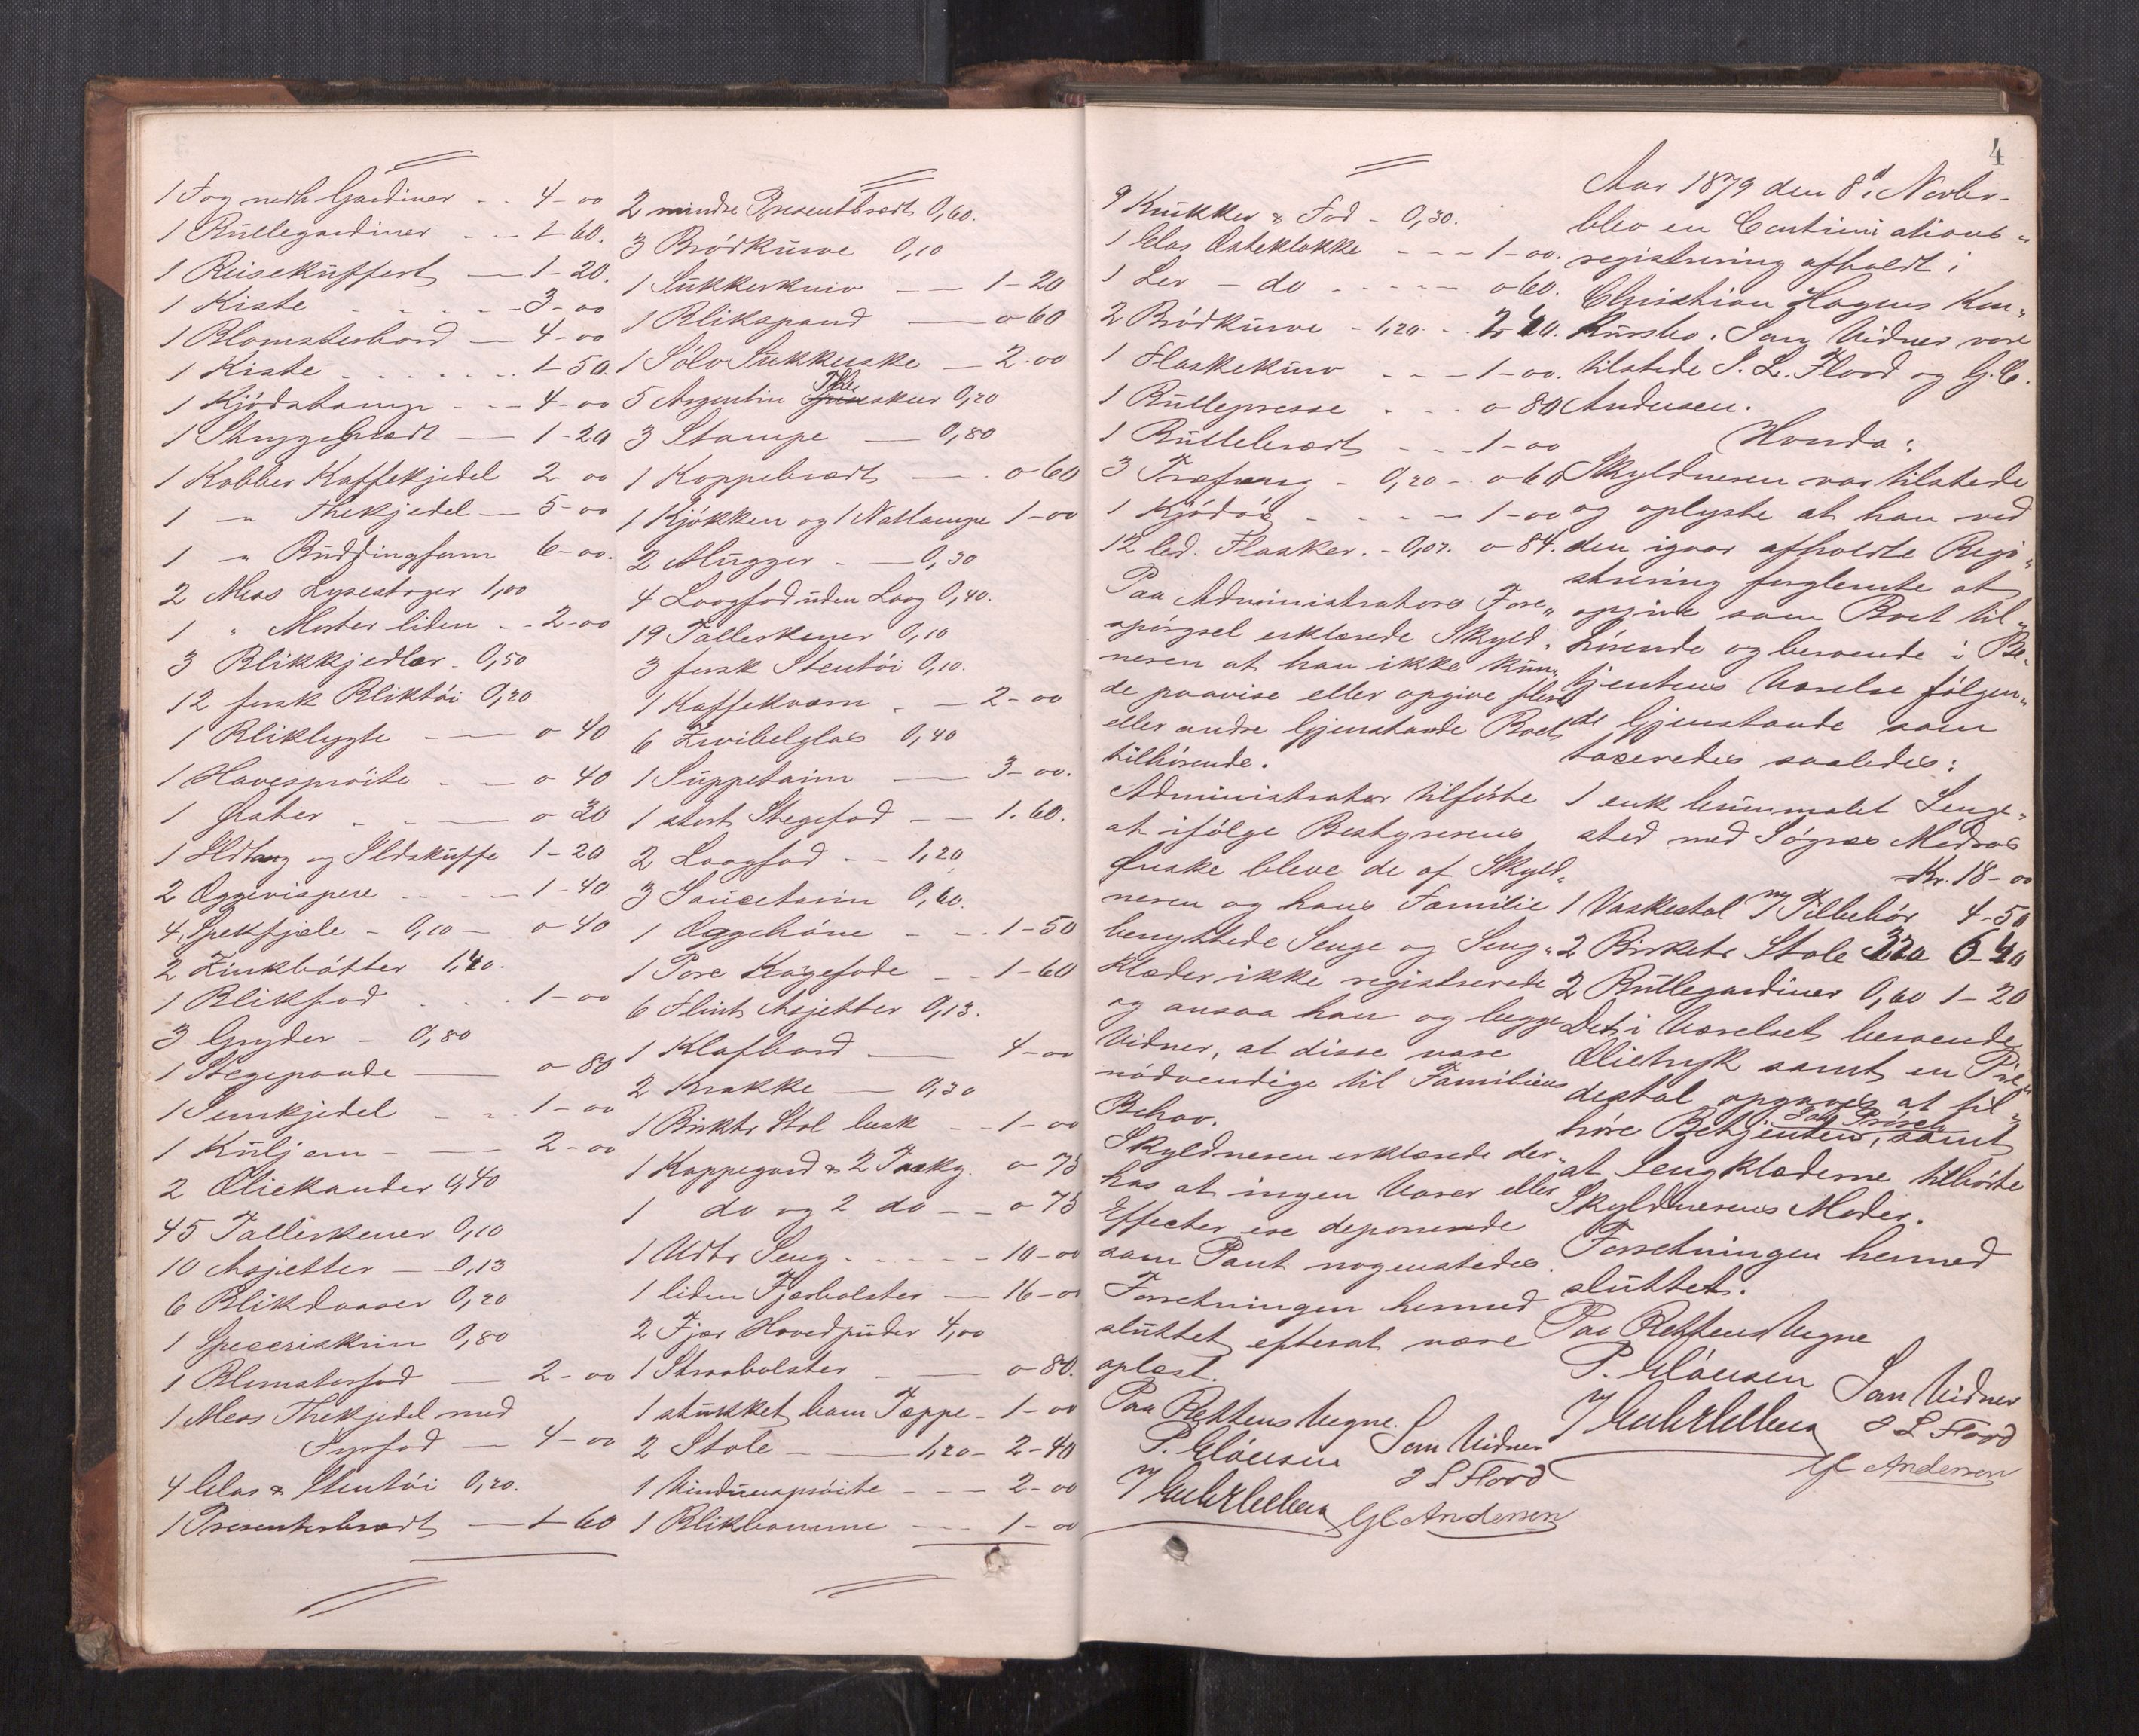 1 Fag nedh Gardiner - - 4-00
1 Rullegardiner - - 1-60.
1 Reisekuffert - 1-20.
1 Kiste - - - - 3-00
1 Blomsterbord - 4-00
1 Kiste - - - - 1-50.
1 Kjödstamp - - 4-00
1 Skyggebrædt - 1-20
1 Kobber Kaffekjedel 2 00
1 - " - Thekjedel - 5-00
1 - " - Buddingform 6-00.
2 Mess Lysestager 1,00
1 " Morter liden - - 2-00
3 Blikkjedler - 0,50
12 forsk Bliktöi 0,20
1 Bliklygte - - 0 40
1 Havespröite - - 0 40
1 Øster - - 0 30
1 Ildtang og Ildskuffe 1-20
2 Æggevispere - - - 1-40.
4 Spekfjæle - 0,10 - 0-40
2 Zinkbötter 1,40.
1 Blikfad - - - 1-00
3 Gryder - 0,80
1 Stegepande - 0-80
1 Jernkjedel - - 1-00
1 Kuljern - - 2-00
2 Oliekander 0,40
45 Tallerkener 0,10
10 Asjetter - 0,13
6 Blikdaaser 0,20
1 Speceriskrin 0,80
1 Blomsterfad - 2-00
1 Mess Thekjedel med
Fyrfad - 4-00
4 Glas & Stentöi 0,20.
1 Presenterbrædt - 1-60
2 mindre Presentbrædt 0,60.
3 Brödkurve 0,10
1 Sukkerkniv - - 1-20
1 Blikspand - 0 60
1 Sölv Sukkerske - 2-00
5 Argentin Theskeer 0,20
3 Stampe - 0,80
1 Koppebrædt - - 0 60
1 Kjökken og 1 Natlampe 1-00
2 Mugger - - 0,30
4 Laagfad uden Laag 0,40.
19 Tallerkener 0,10
3 forsk Stentöi 0,10.
1 Kaffekværn - - 2-00
6 Zwibelglas 0,40
1 Suppeterin - 3-00.
1 stort Stegefad - - 1.60.
2 Laagfad - - 1,20
3 Sauceterin 0,60.
1 Æggehöne - - 1-50
1 Pore Kagefade - - 1-60
6 Flint Asjetter 0,13.
1 Klafbord - 4-00
2 Krakke - 0,30
1 Birktr Stol brsk - - 1-00
1 Kappegard & 2 0-75
1 do og 2 do - - 0-75
1 Udtr Seng - - - - 10-00
1 liden Fjærbolster - 16-00
2 Fjær Hovedpuder 4,00
1 Straabolster - - 0-80.
1 stukket bom Tæppe - 1-00
2 Stole - 1,20 - 2-40
1 Vinduespröite - - - 2-00
1 Blikkanne - - 1-00
4
9 Krukker & Fad - 0,30.
1 Glas Osteklokke - - - 1-00.
1 Ler - do - - - - 0 60.
2 Brödkurve - 1,20 - 2 40.
1 Flaskekurv - - - 1-00.
1 Rullepresse - - - 0-80
1 Rullebrædt - - - 1-00
3 Træfang - 0,20 - 0-60
1 Kjödöx - - - - 1-00
12 led. Flasker. - 0,07. 0-84.
Paa Administrators Fore„
spörgsel erklærede Skyld„
neren at han ikke kun„
de paavise eller opgive flere
eller andre Gjenstande Boet
tilhörende.
Administrator tilförte
at ifölge Bestyrerens
Ønske bleve de af Skyld„
neren og hans Familie
benyttede Senge og Seng„
klæder ikke registrerede
og ansaa han og begge
Vidner, at disse vare
nödvendige til Familiens
Behov.
Skyldneren erklærede der„
hos at ingen Varer eller
Effecter ere deponerede
som Pant nogensteds.
Forretningen hermed
sluttet efterat være
oplæst.
Paa Rettens Vegne.
P. Clausen Som Vidner
J L Flood
Gl Andersen
Aar 1879 den 8d Novbr.
blev en Continuations„
registrering afholdt i
Christian Hagens Kon„
kursbo. Som Vidner vare
tilstede J. L. Flood og G. C.
Andersen.
Hvorda:
Skyldneren var tilstede
og oplyste at han ved
den igaar afholdte Regi„
strering forglemte at
opgive som Boet til„
hörende og beroende i Be„
tjentens Værelse fölgen„
de Gjenstande som
taxeredes saaledes:
1 enk brunmalet Senge„
sted med Sögræs Madras
Kr. 18-00
1 Vaskestol m/ Tilbehör 4-50
2 Birketr Stole 3,20 6-40
2 Rullegardiner 0,60 1-20
Det i Værelset beroende
Olietryk samt en Pie„
destal opgaves at til„
höre Betjenten, samt
at Sengklæderne tilhörte
Skyldnerens Moder.
Forretningen hermed
sluttet.
Paa Rettens Vegne
P. Clausen Som Vidner
J L Flood
Gl Andersen